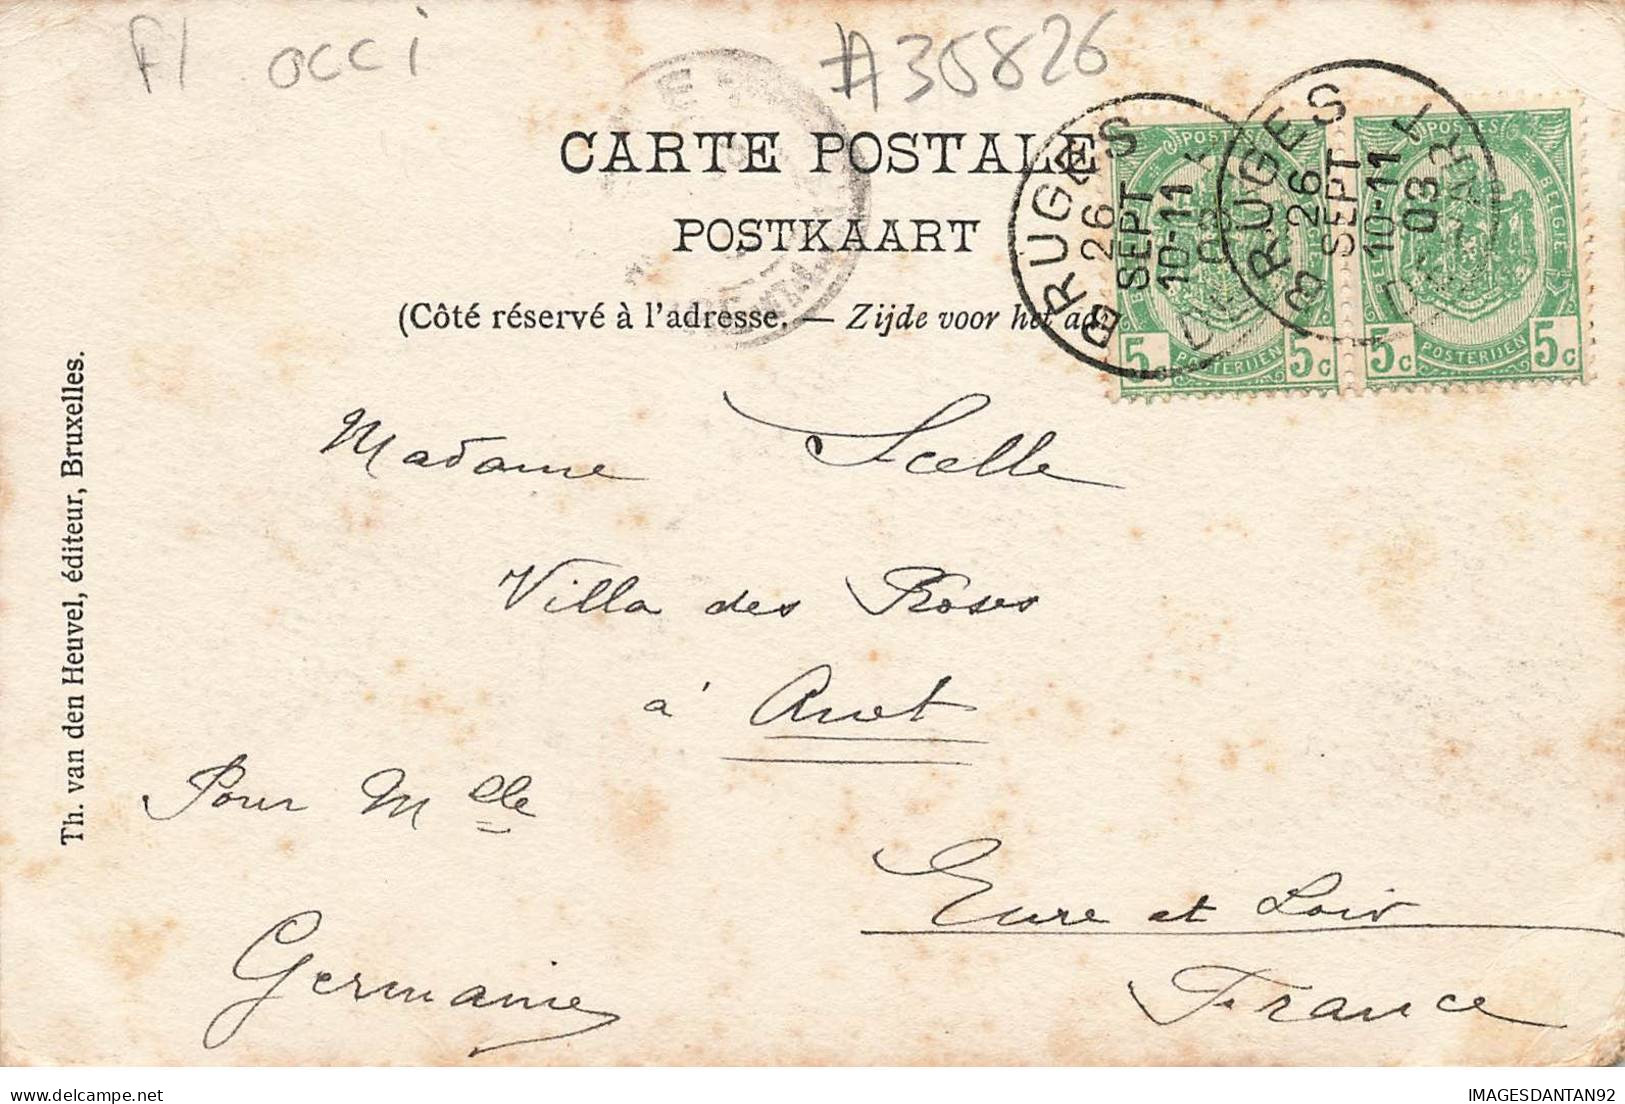 Fl occi #35826
CARTE POSTALE
POSTKAART
(Côté réservé à l'adresse. — Zijde voor het ad
BRUGES
26
SEPT
10-11
03
DÉPART
BRUGES
26
SEPT
10-11
03
DÉPART
POSTES
BELGIË
5c POSTERIJEN 5c
POSTES
BELGIË
5c POSTERIJEN 5c
Th. van den Heuvel, éditeur, Bruxelles.
Madame Scelle
Villa des Roses
à Anet
Pour Mlle
Germaine
Eure et Loir
France
IMAGESDANTAN92